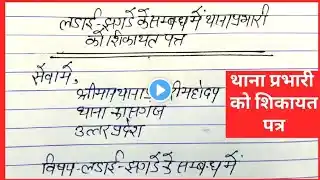 लडाई-झगडे के सम्बन्ध में थाना प्रभारी
को शिकायत पत्र
सेवा में,
श्रीमान थाना
महोदय
थाना कासगंज
उत्तर प्रदेश
विषय-लडाई-झगडे के सम्बन्ध में
थाना प्रभारी
को शिकायत
पत्र